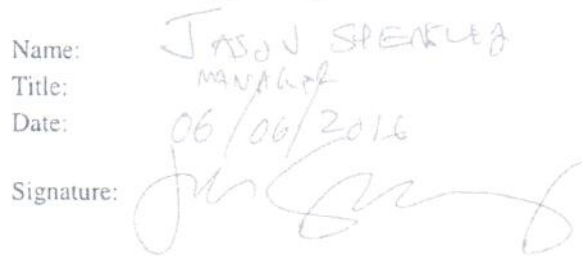 Name: JASON
Title: MANAGER
Date: 06/06/2016
Signature: